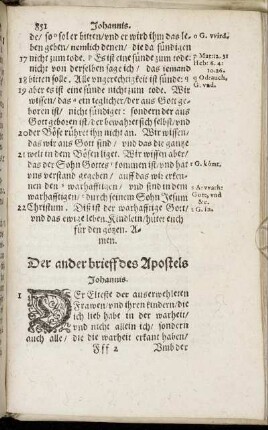 851 Johannis.
de/ so sol er bitten/ vnd er wird ihm das le-
ben geben/ nemlich denen/ die da sündigen
17 nicht zum tode. Es ist eine sünde zum tode
nicht von derselben sage ich/ das iemand
18 bitten solle. Alle vngerechtigkeit ist sünde:
19 aber es ist eine sünde nicht zum tode. Wir
wissen/ das ein ieglicher/ der aus Gott ge-
boren ist/ nicht sündiget: sondern der aus
Gott geboren ist/ der bewahret sich selbst/ vnd
20 der Böse rühret ihn nicht an. Wir wissen/
das wir aus Gott sind/ vnd das die gantze
21 welt in dem Bösen liget. Wir wissen aber/
das der Sohn Gottes kommen ist/ vnd hat
vns verstand gegeben/ auff das wir erken-
nen den warhafftigen/ vnd sind in dem
warhafftigen/ durch seinem Sohn Jesum
22 Christum. Dis ist der warhafftige Gott/
vnd das ewige leben. Kindlein/ hütet euch
für den götzen. A-
men.
Der ander brieff des Apostels
Johannis.
1 DEr Elteste der auserwehleten
Frawen/ vnd ihren kindern/ die
ich lieb habe in der warheit/
vnd nicht allein ich/ sondern
auch alle/ die die warheit erkant haben/
Fff 2 Vmb der